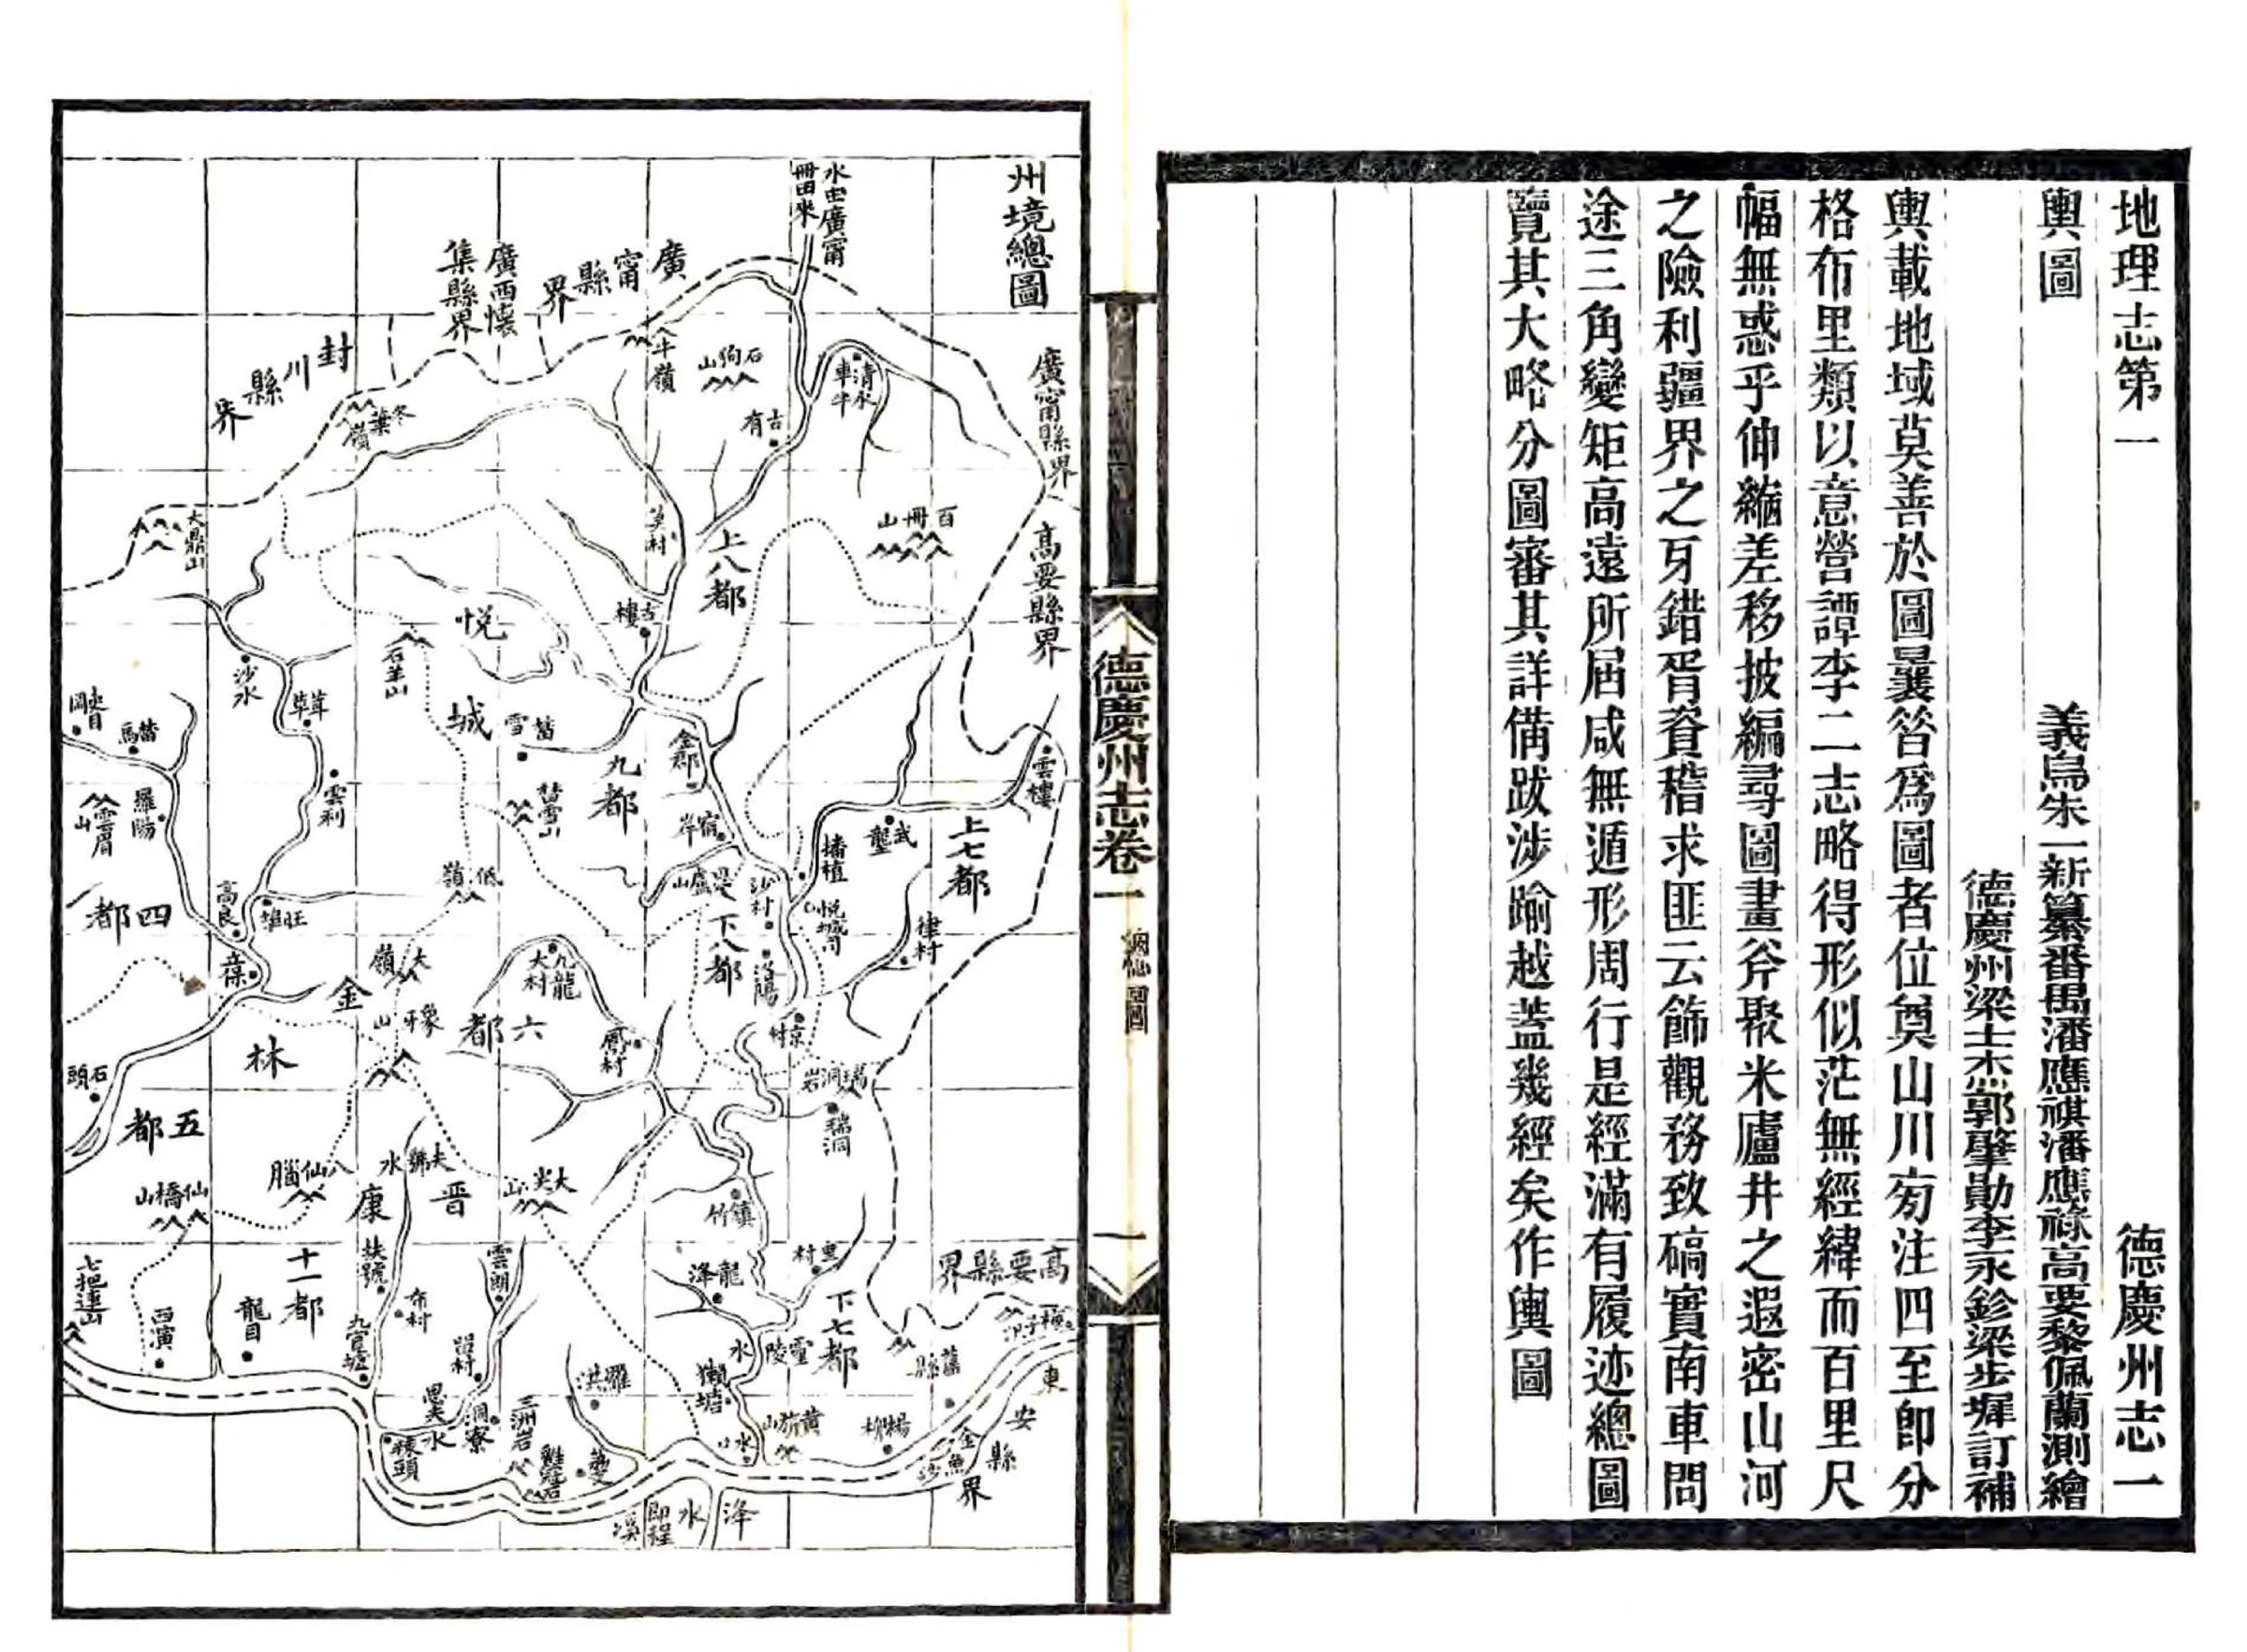 地理志第一　德慶州志一
輿圖　義烏朱一新纂番禺潘應祺潘應祿高要黎佩蘭測繪
德慶州梁士杰郭肇勛李永鉁梁步墀訂補
輿載地域莫善於圖曩昝爲圖者位奠山川㫄注四至卽分
格布里類以意營譚李二志略得形似茫無經緯而百里尺
幅無惑乎伸縮差移披編尋圖晝斧聚米廬井之遐密山河
之險利疆界之牙錯胥資稽求匪云飾觀務致碻實南車問
途三角變矩高遠所屆咸無遁形周行是經滿有履迹總圖
覽其大略分圖審其詳備跋涉踰越葢幾經矣作輿圖
德慶州志卷一
一
州境總圖
水由廣甯
冊田來
廣甯縣界
廣西懷
集縣界
封川縣界
廣甯縣界
高要縣界
石狗山
清水
車牛
古有
大鼎山
百冊山
莫村
上八都
古樓
悅
城
石羊山
沙水
播植
雲樓
武壟
上七都
律村
金郡
九都
雪山
雲利
羅陽
雲眉山
四都
高良
旺埠
低嶺
大嶺
沙村
悅城司
下八都
洛陽
京村
九龍
大村
六都
鳳村
金
林
象牙山
石頭
五都
瑞洞岩
瑞洞
仙橋山
八仙腦
夫號水
晉
康
大尖山
竹鎮
里村
龍洚
下七都
靈陵
水
高要縣界
舊縣
東安縣界
金魚沙
楊柳
黃旂山
水口
獺塘
羅洪
三洲岩
洞寮
思夫水
雲朗
布村
扶號
九官塘
十一都
龍目
西濱
七把連山
洚水
卽程溪